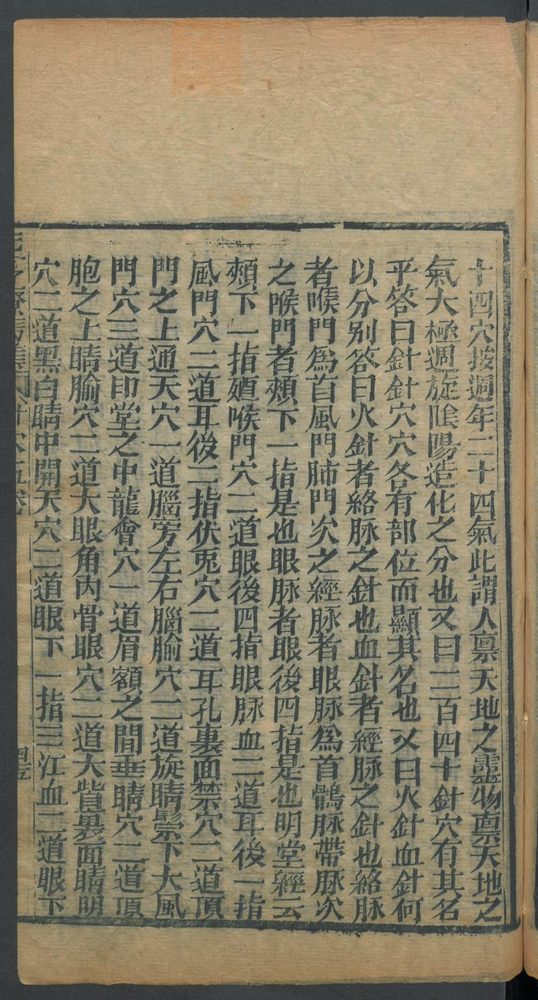 十四穴按週年二十四氣此謂人禀天地之靈物禀天地之
氣大極週旋陰陽造化之分也又曰三百四十針穴有其名
乎答曰針針穴穴各有部位而顯其名也又曰火針血針何
以分别答曰火針者絡脉之針也血針者經脉之針也絡脉
者喉門爲首風門肺門次之經脉者眼脉爲首鶻脉帶脉次
之喉門者頰下一指是也眼脉者眼後四指是也明堂經云
頰下一指喉門穴二道眼後四指眼脉血二道耳後一指
風門穴二道耳後二指伏兎穴二道耳孔裏面禁穴二道頂
門之上通天穴一道腦旁左右腦腧穴二道旋睛鬃下大風
門穴三道印堂之中龍會穴一道眉額之間垂睛穴二道頂
胞之上睛腧穴二道大眼角內骨眼穴二道大眥裏面睛明
穴二道黑白睛中開天穴二道眼下一指三江血二道眼下